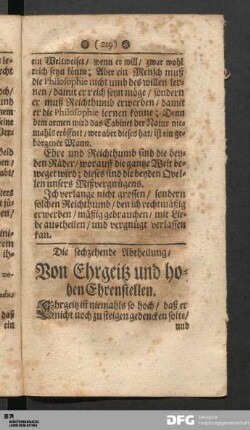 (219)
ein Weltweiser / wenn er will / zwar wohl
reich seyn könne; Aber ein Mensch muß
die Philosophie nicht und des willen ler-
nen / damit er reich seyn möge / sondern
er muß Reichthumb erwerben / damit
er die Philosophie lernen könne; Denn
dem armen wird das Cabinet der Natur nie-
mahls eröffnet / wer aber dieses hat / ist ein ge-
borgener Mann.
Ehre und Reichthumb sind die bey-
den Räder / worauff die gantze Welt be-
weget wird; dieses sind die beyden Qvel-
len unsers Mißvergnügens.
Ich verlange nicht grossen / sondern
solchen Reichthumb / den ich rechtmäßig
erwerben / mäßig gebrauchen / mit Lie-
be austheilen / und vergnügt verlassen
kan.
Die sechzehende Abtheilung /
Von Ehrgeitz und ho-
hen Ehrenstellen.
Ehrgeitz ist niemahls so hoch / daß er
nicht noch zu steigen gedencken solte /
und
DFG